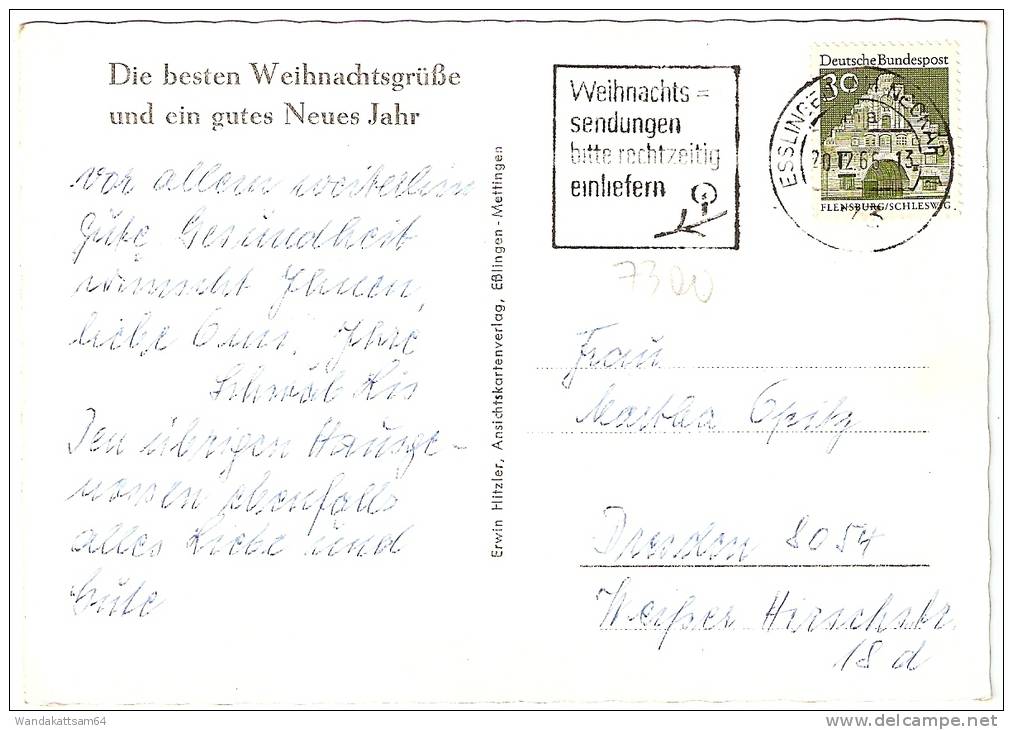 Die besten Weihnachtsgrüße
und ein gutes Neues Jahr
vor allem weiterhin
gute Gesundheit
wünscht Ihnen,
liebe Omi, Ihre
Schwäb
Den übrigen Hausge-
nossen ebenfalls
alles Liebe und
Gute
Erwin Hitzler, Ansichtskartenverlag, Eßlingen-Mettingen
Weihnachts=
sendungen
bitte rechtzeitig
einliefern
Deutsche Bundespost
30
FLENSBURG/SCHLESWIG
ESSLINGEN NECKAR
a
20.12.66-13
73
7300
Frau
Martha Opitz
Dresden 8054
Weißer Hirschstr.
18 d
Wandakattsam64
www.delcampe.net